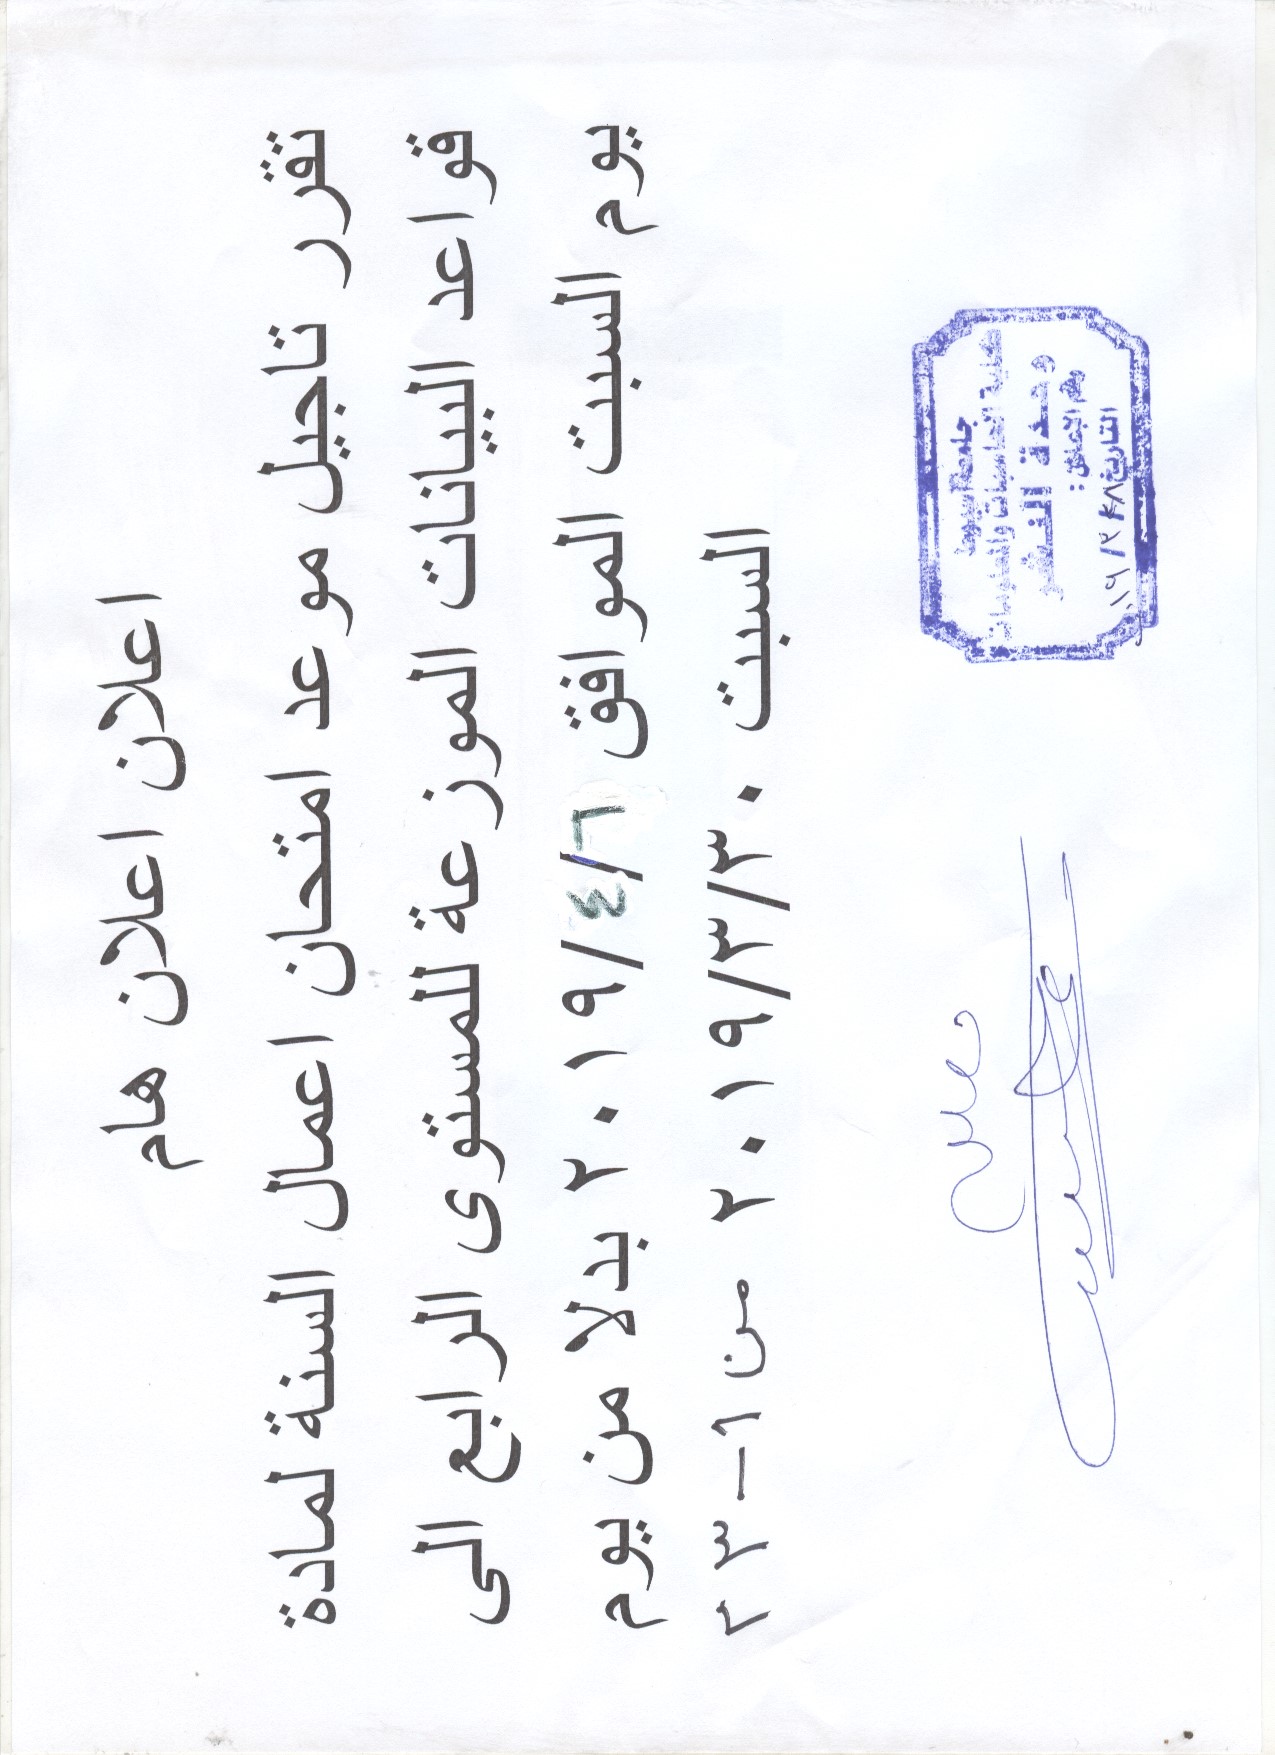 اعلان اعلان هام
تقرر تاجيل موعد امتحان اعمال السنة لمادة
قواعد البيانات الموزعة للمستوى الرابع الى
يوم السبت الموافق ٢٠١٩/٤/٦ بدلا من يوم
السبت ٢٠١٩/٣/٣٠ من ١-٢٣
جامعة اسيوط
كلية الحاسبات والمعلومات
وحدة النشر
رقم الإعلان:
التاريخ